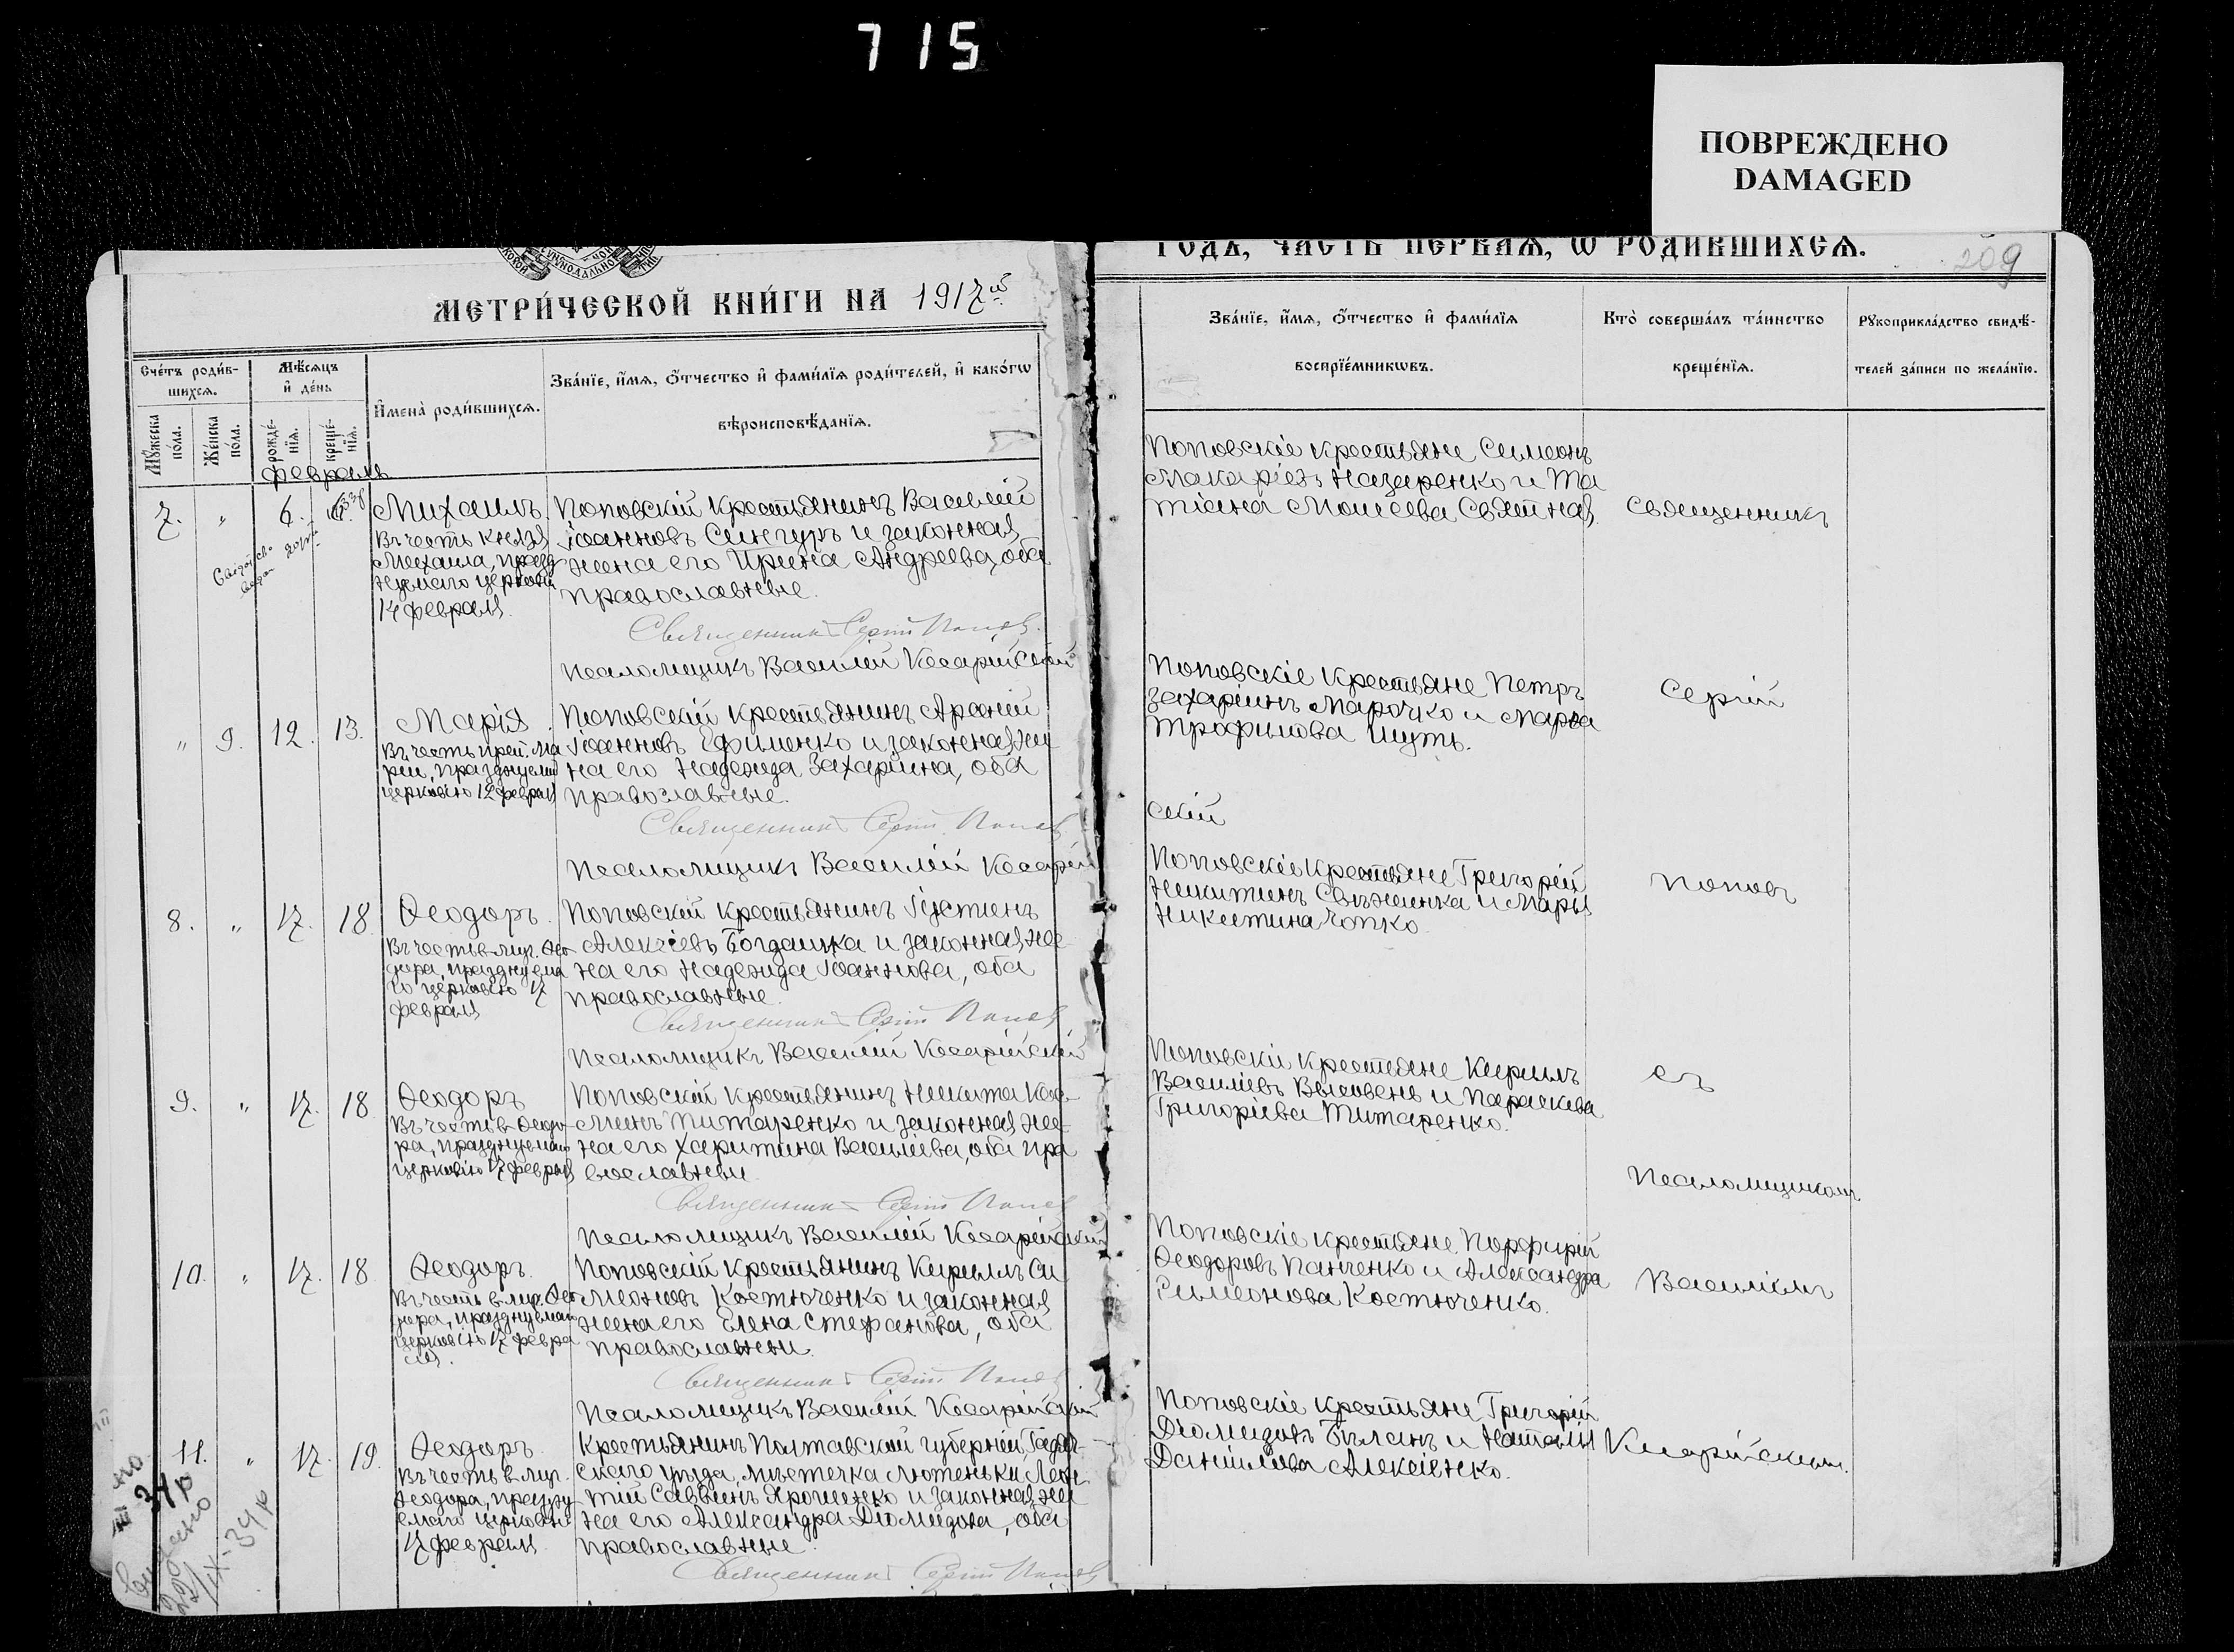 715
ПОВРЕЖДЕНО
DAMAGED
МЕТРИ́ЧЕСКОЙ КНИ́ГИ НА 1917й
ГОДЪ, ЧАСТЬ ПЕРВАЯ, Ѡ РОДИВШИХСЯ.
209
Сче́тъ роди́в-
шихся.
Мѣ́сяцъ
и҆ де́нь
Мꙋ́жеска
по́ла.
Же́нска
по́ла.
рожде́-
нїя.
креще́-
нїя.
И҆мена̀ роди́вшихся.
Зва́нїе, и҆́мя, ѻ҆́тчество и҆ фами́лїя роди́телей, и҆ како́гѡ
вѣроисповѣ́данїя.
Зва́нїе, и҆́мя, ѻ҆́тчество и҆ фами́лїя
воспрїе́мникѡвъ.
Кто̀ соверша́лъ та́инство
креще́нїя.
Рꙋкоприкла́дство свидѣ́-
телей за́писи по жела́нїю.
Февраль
7. " 6.
Михаилъ
Въ честь Князя
Михаила, празд
нуемаго церковію
14 февраля.
Поповскій крестьянинъ Василій
Іоанновъ Сингуръ и законная
жена его Ирина Андреева, оба
православные.
Священникъ Сергій Поповъ
Псаломщикъ Василій Кесарійскій
Поповскіе крестьяне Симеонъ
Макаріевъ Назаренко и Та
тіана Моисеева Святная.
Священникъ
" 9. 12. 13.
Марія
Въ честь преп. Ма
ріи, празднуемой
церковію 12 февраля
Поповскій крестьянинъ Арсеній
Іоанновъ Ефименко и законная же
на его Надежда Захаріина, оба
православные.
Священникъ Сергій Поповъ
Псаломщикъ Василій Кесарій
скій
Поповскіе крестьяне Петръ
Захаріинъ Марочко и Марѳа
Трофимова Шуть.
Сергій
8. " 17. 18
Ѳеодоръ.
Въ честь влмч. Ѳео
дора, празднуема
го церковію 17
февраля
Поповскій крестьянинъ Іустинъ
Алексіевъ Богдашка и законная же
на его Надежда Іоаннова, оба
православные.
Священникъ Сергій Поповъ
Псаломщикъ Василій Кесарійскій
Поповскіе крестьяне Григорій
Никитинъ Свѣженка и Марія
Никитина Чопко.
Поповъ
9. " 17. 18
Ѳеодоръ
Въ честь в. Ѳеодо
ра, празднуемаго
церковію 17 февраля
Поповскій крестьянинъ Никита Кос
минъ Титаренко и законная же
на его Харитина Василіева, оба пра
вославны
Священникъ Сергій Поповъ
Псаломщикъ Василій Кесарійскій
Поповскіе крестьяне Кирилъ
Василіевъ и Параскева
Григоріева Титаренко.
съ
Псаломщикомъ
10. " 17. 18
Ѳеодоръ.
Въ честь влмч. Ѳео
дора, празднуемаго
церковію 17 февра
ля.
Поповскій крестьянинъ Кириллъ Си
меоновъ Костюченко и законная
жена его Елена Стефанова, оба
православны.
Священникъ Сергій Поповъ
Псаломщикъ Василій Кесарійскій
Поповскіе крестьяне Порфирій
Ѳеодоровъ Панченко и Александра
Симеонова Костюченко.
Василіемъ
11. " 17. 19.
Ѳеодоръ
Въ честь влмч.
Ѳеодора, праздну
емаго церковію
17 февраля
Крестьянинъ Полтавской губерніи, Гадяч-
скаго уѣзда, мѣстечка Лютеньки, Леон
тій Саввинъ Ярошенко и законная же
на его Александра Діомидова, оба
православные.
Священникъ Сергій Поповъ
Поповскіе крестьяне Григорій
Діомидовъ Бѣланъ и Наталія
Даніилова Алексіенко.
Кесарійскимъ.